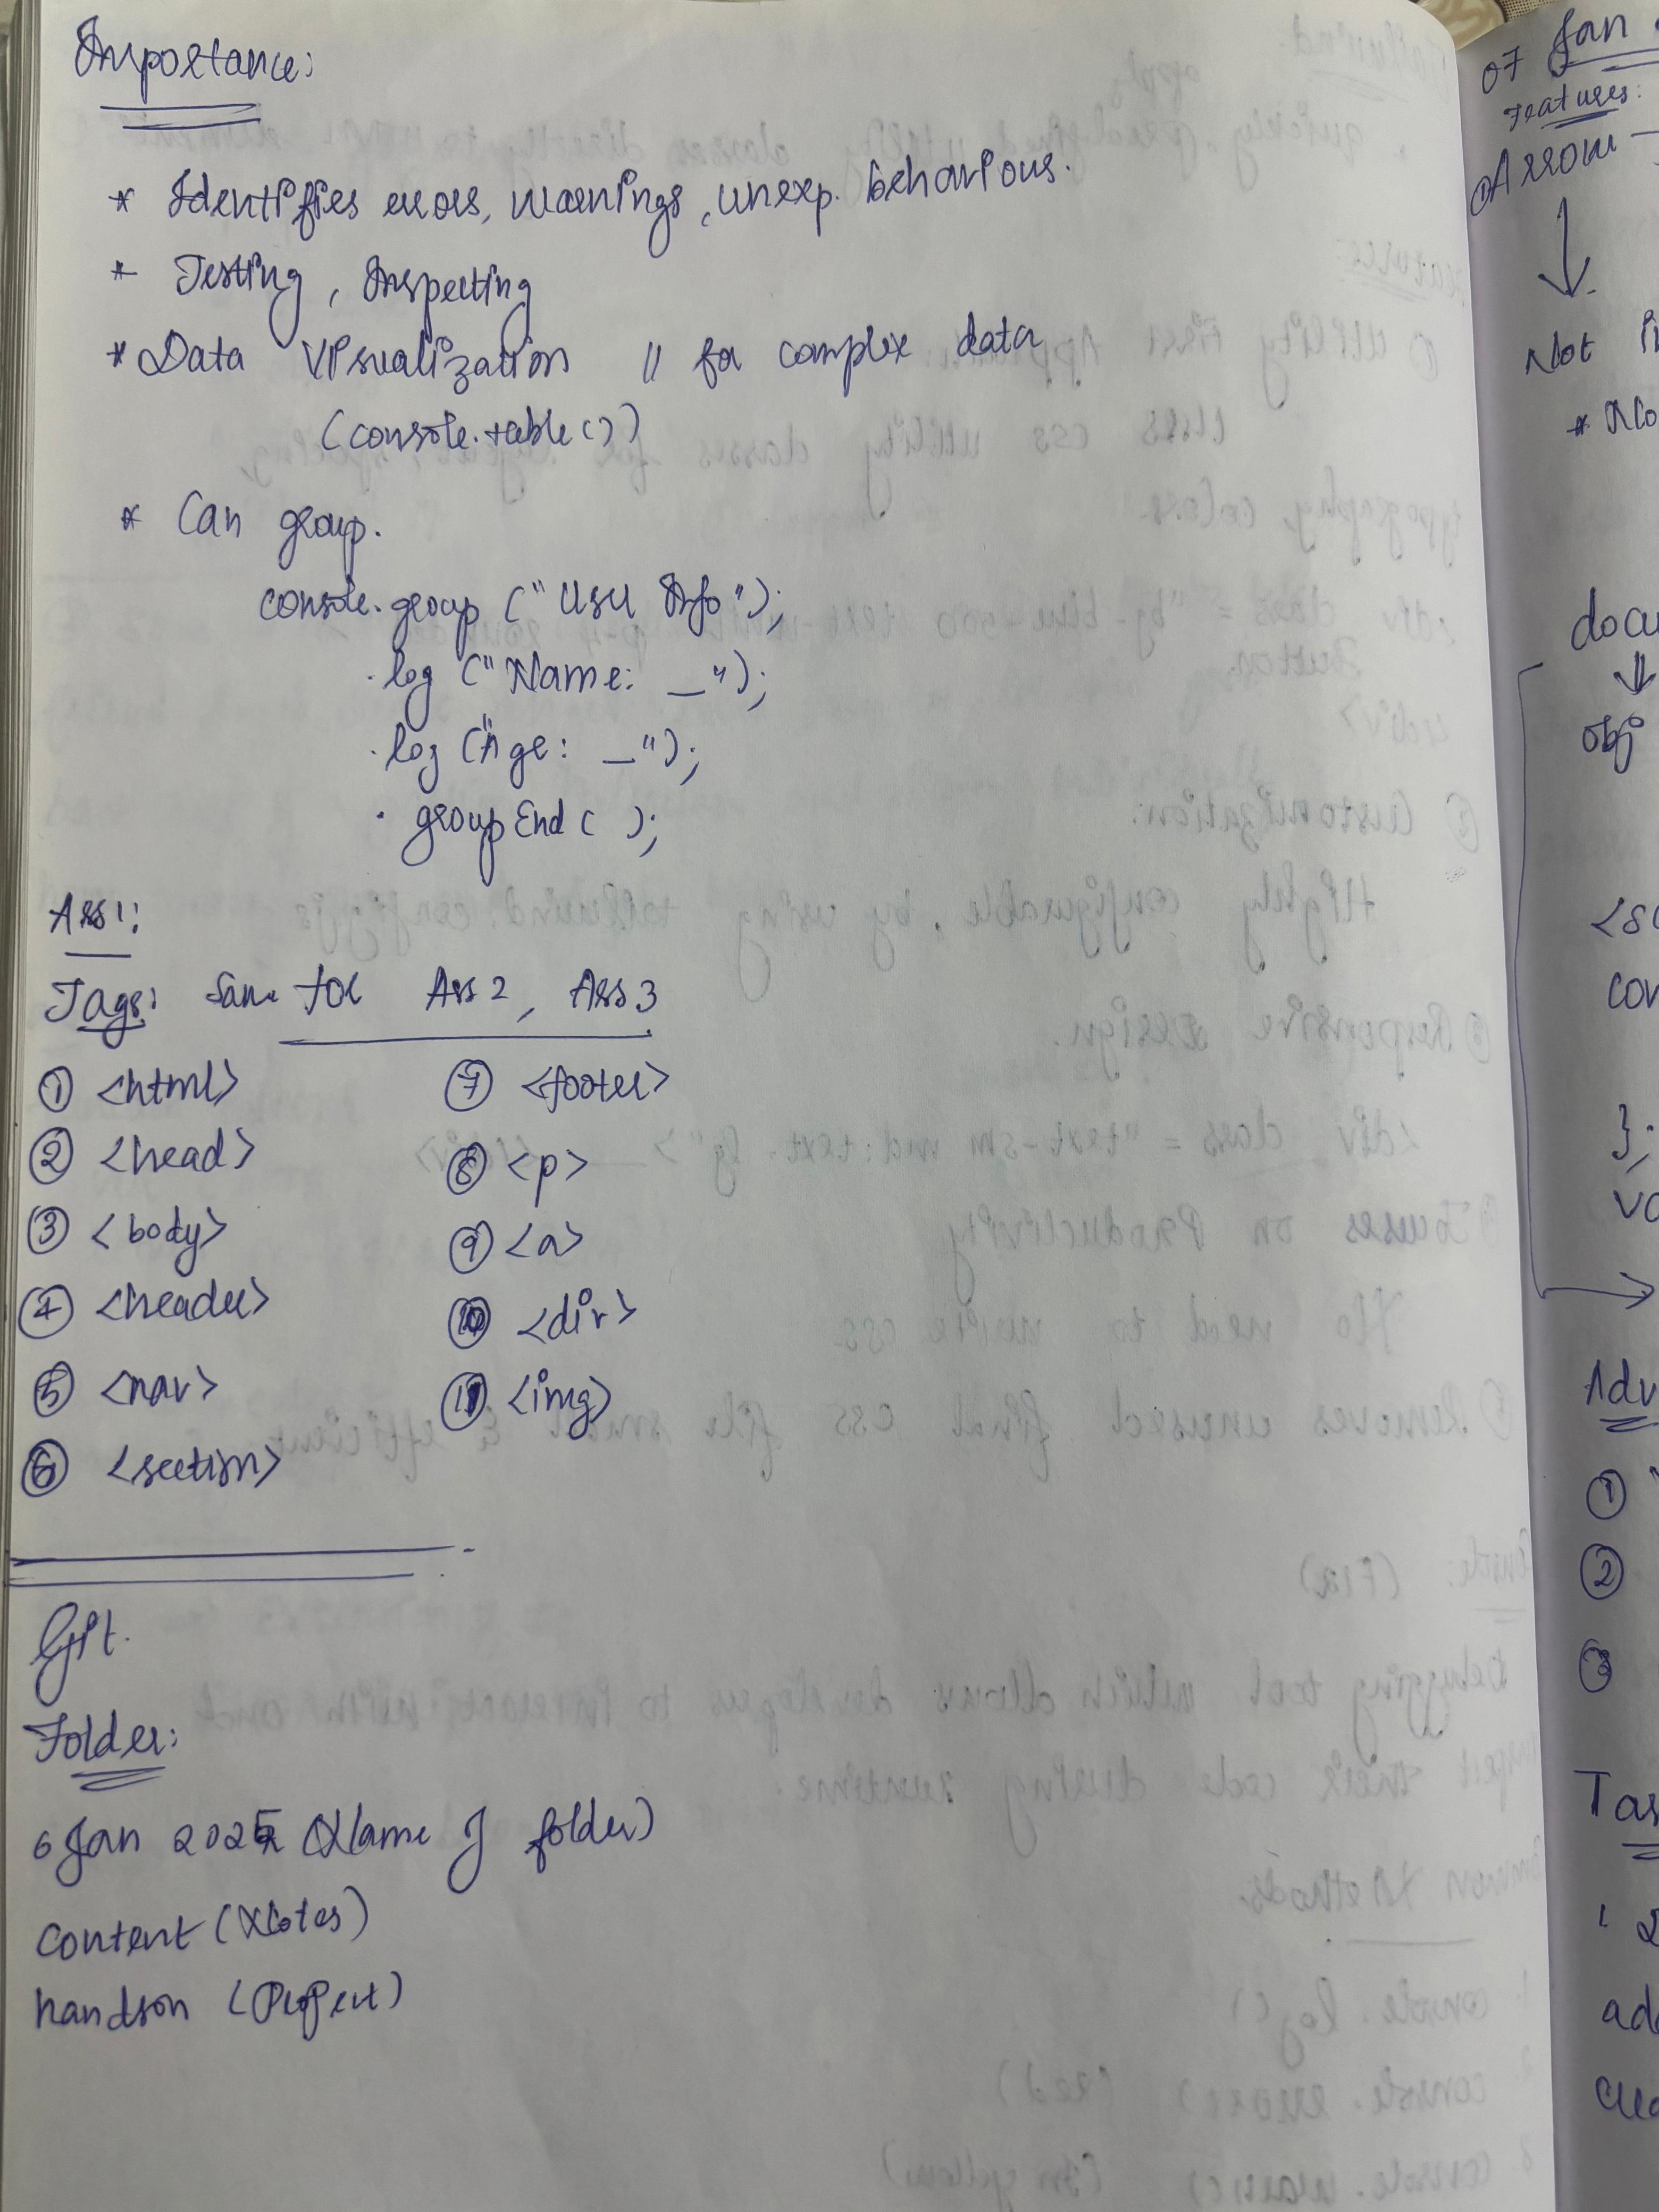 Importance:
* Identifies errors, warnings, unexp. behaviours.
* Testing, Inspecting
* Data Visualization // for complex data
(console.table())
* Can group.
console.group ("User Info");
.log ("Name: _");
.log ("Age: _");
.groupEnd ( );
Ass 1:
Tags: Same for Ass 2, Ass 3
① <html> ⑦ <footer>
② <head> ⑧ <p>
③ <body> ⑨ <a>
④ <header> ⑩ <div>
⑤ <nav> ⑪ <img>
⑥ <section>
Git.
Folder:
6 Jan 2025 (Name of folder)
Content (Notes)
handson (Project)
07 Jan
Features:
① Arrow
Not
* No
docu
obj
<sc
con
};
va
Adv
①
②
③
Tas
add